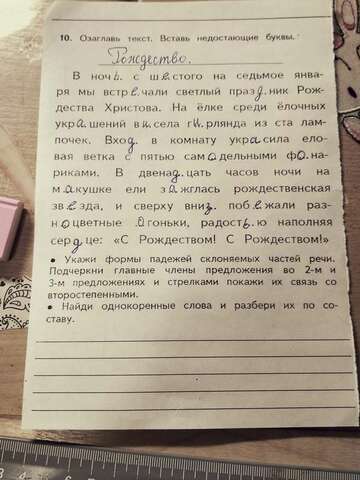 10. Озаглавь текст. Вставь недостающие буквы.
Рождество.
В ночь с шестого на седьмое янва-
ря мы встречали светлый праздник Рож-
дества Христова. На ёлке среди ёлочных
украшений висела гирлянда из ста лам-
почек. Вход в комнату украсила ело-
вая ветка с пятью самодельными фона-
риками. В двенадцать часов ночи на
макушке ели зажглась рождественская
звезда, и сверху вниз побежали раз-
ноцветные огоньки, радостью наполняя
сердце: «С Рождеством! С Рождеством!»
• Укажи формы падежей склоняемых частей речи.
Подчеркни главные члены предложения во 2-м и
3-м предложениях и стрелками покажи их связь со
второстепенными.
• Найди однокоренные слова и разбери их по со-
ставу.
3 4 5 6 7 8 9